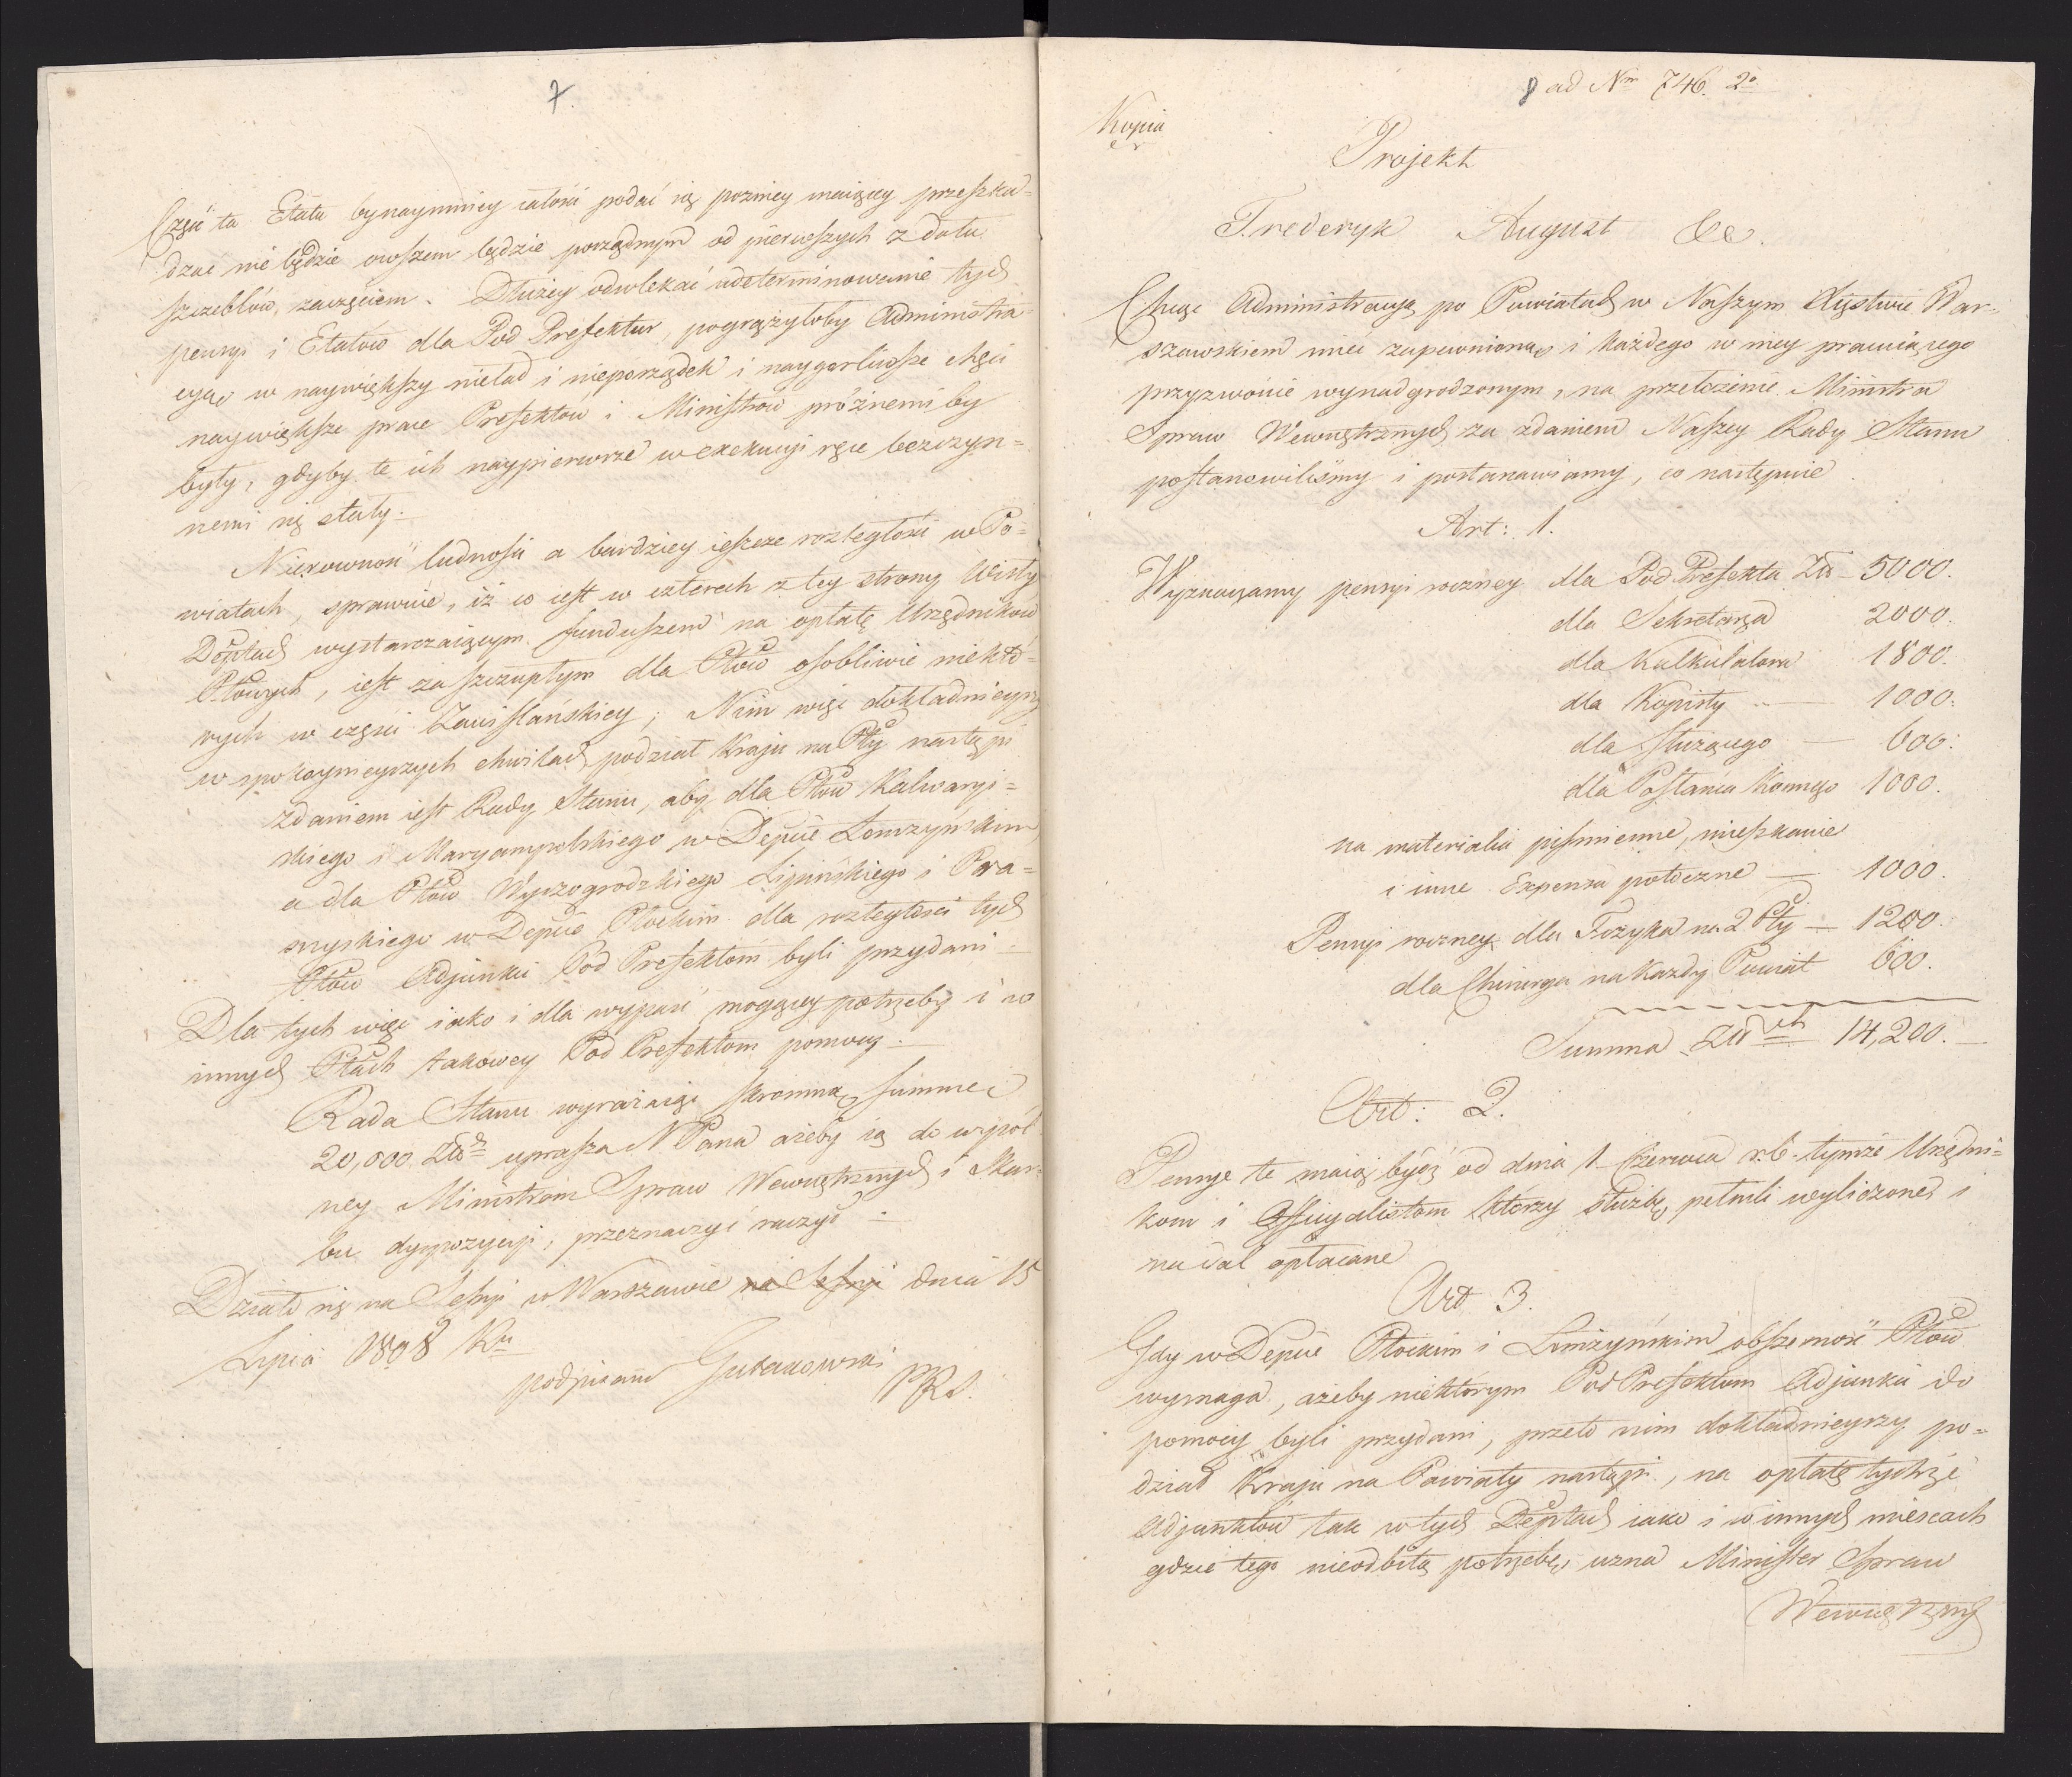 7.
Część ta Etatu bynaymniey całości podać się pozniey maiącey przeszka-
dzać nie będzie owszem będzie porządnym od pierwszych z dołu
szczeblów, zaczęciem. Dłużey odwlekać udeterminowanie tych
pensyi i Etatów dla Pod Prefektur, pogrążyłoby Administra-
cyą w naywiększy nieład i nieporządek i naygorliwsze chęci
naywiększe prace Prefektów i Ministrow próżnemi by
były, gdyby te ich naypierwsze w exekucyi ręce bezczyn-
nemi się stały.
Nierownosć ludności a bardziey ieszcze rozległości w Po-
wiatach, sprawuie, iż co iest w czterech z tey strony Wisły
Deptach wystarczaiącym funduszem na opłatę Urzędnikow
Ptowych, iest za szczupłym dla Ptów osobliwie niektó-
rych w części Zawislańskiey; Nim więc dokładnieyszy
w spokoynieyszych chwilach podział Kraju na Pty nastąpi
zdaniem iest Rady Stanu, aby dla Ptów Kalwaryi-
skiego i Maryampolskiego w Depcie Łomzyńskim,
a dla Ptów Wyszogrodzkiego Lipińskiego i Pra-
snyskiego w Depcie Płockim dla rozległości tych
Ptów Adjunkci Pod Prefektom byli przydani –
Dla tych więc iako i dla wypaść mogącey potrzeby i w
innych Ptach takowey Pod Prefektom pomocy –
Rada Stanu wyrażaiąc skromną summę
20,000 Złch uprasza N Pana ażeby ią do wspól-
ney Ministrom Spraw Wewnętrznych i Skar-
bu dyspozycyi, przeznaczyć raczył –
Działo się na Sessyi w Warszawie na Sessyi dnia 15
Lipca 1808 Ru
podpisano Gutakowski
PRS.
8 ad Nm 746. 2o
Kopia
Projekt
Frederyk August &c.
Chcąc Administracyą po Powiatach w Naszym Xięstwie War-
szawskiem mieć zapewnioną, i każdego w niey pracuiącego
przyzwoicie wynadgrodzonym, na przełożenie Ministra
Spraw Wewnętrznych za zdaniem Naszey Rady Stanu
postanowiliśmy i postanawiamy, co następuie
Art: 1.
Wyznaczamy pensyi roczney dla Pod Prefekta Zł – 5000.
dla Sekretarza 2000.
dla Kalkulatora 1800.
dla Kopisty — 1000.
dla służącego — 600.
dla Posłańca konnego 1000.
na materialia piśmienne, mieszkanie
i inne Expensa potoczne — 1000.
Pensyi roczney dla Fizyka na 2 Pty — 1200.
dla Chirurga na każdy Powiat 600.
Summa Złych 14,200.
Art: 2.
Pensye te maią bydź od dnia 1 Czerwca r.b. tymże Urzędni-
kom i Officyalistom którzy służbę pełnili wyliczone i
nadal opłacane
Art 3.
Gdy w Depcie Płockim i Łomżyńskim obszerność Ptów
wymaga, ażeby niektórym Pod Prefektom Adjunkci do
pomocy byli przydani, przeto nim dokładnieyszy po-
dział Kraju na Powiaty nastąpi, na opłatę tychże
Adjunktów tak w tych Deptach iako i w innych miescach
gdzie tego nieodbitą potrzebę uzna Minister Spraw
Wewnętrznych